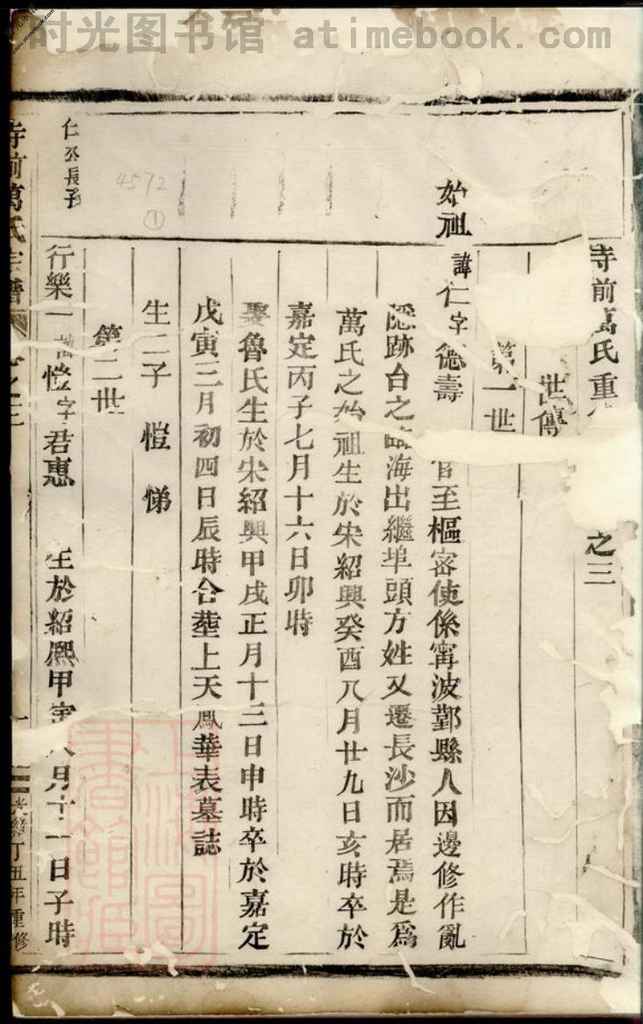 时光图书馆 atimebook.com
寺前萬氏重
之三
世傳
第一世
始祖 諱仁字德壽 官至樞密使係甯波鄞縣人因邊修作亂
隱跡台之臨海出繼埠頭方姓又遷長沙而居焉是為
萬氏之始祖生於宋紹興癸酉八月廿九日亥時卒於
嘉定丙子七月十六日卯時
娶魯氏生於宋紹興甲戌正月十三日申時卒於嘉定
戊寅三月初四日辰時合塟上天鳳華表墓誌
生二子 愷 悌
第二世
仁公長子
4572
①
行樂一 諱愷字君惠 生於紹熙甲寅八月十二日子時
寺前萬氏宗譜
卷之三
一
光緒丁丑年重修